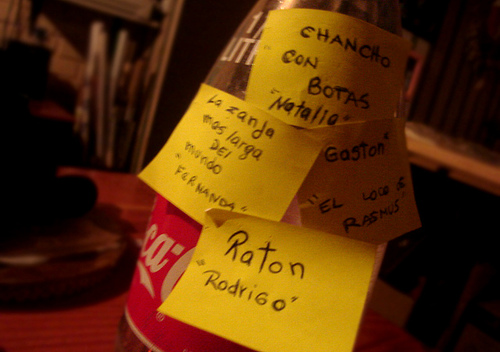 1
LITR
CHANCHO
CON
BOTAS
"Natalia"
La zanja
mas larga
DEL
mundo
"FERNANDA"
Gaston"
"EL LOCO DE
RASMUS"
Raton
"Rodrigo"
ca-C